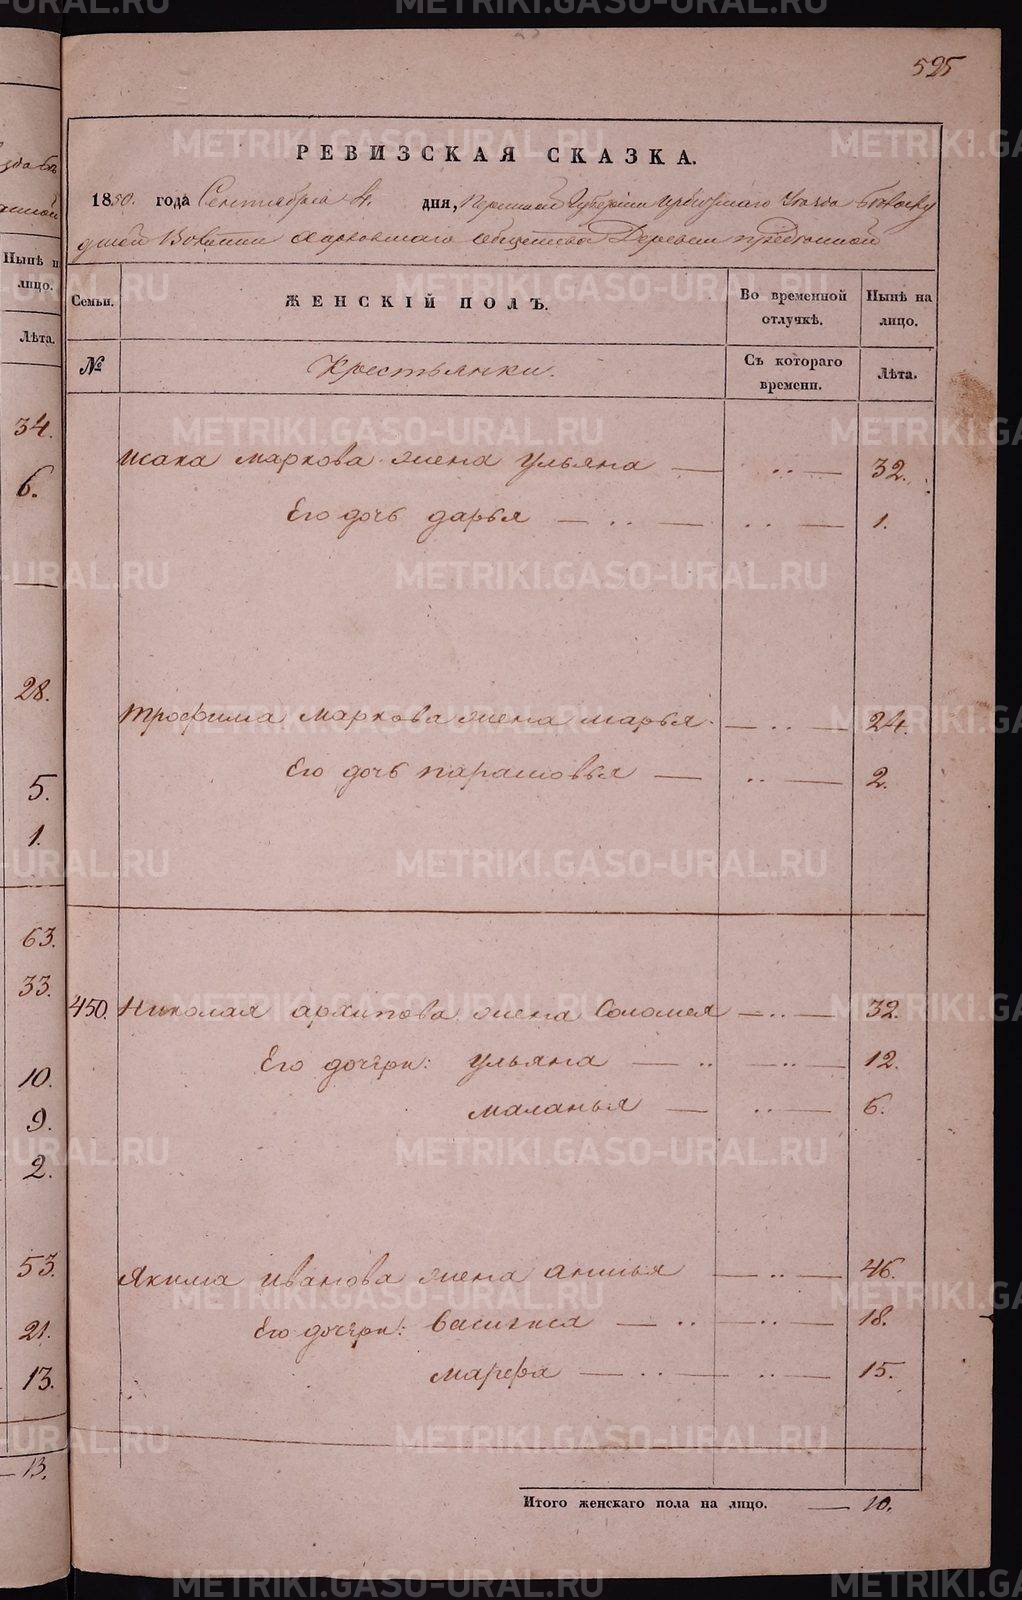 525
РЕВИЗСКАЯ СКАЗКА.
1850. года Сентября 4. дня, Пермской Губернии Ирбитского Уезда
общества Деревни
Семьи.
ЖЕНСКІЙ ПОЛЪ.
Во временной отлучкѣ.
Нынѣ на лицо.
№
Крестьянки.
Съ котораго времени.
Лѣта.
Исака маркова жена Ульяна — .. — 32.
Его дочь дарья — .. — .. — 1.
трофима маркова жена марья — .. — 24.
Его дочь парасковья — .. — 2.
450. Николая архипова жена Соломея — .. — 32.
Его дочери: ульяна — .. — .. — 12.
маланья — .. — 6.
Якима иванова жена анисья — .. — 46.
Его дочери: василиса — .. — .. — 18.
марфа — .. — .. — 15.
Итого женскаго пола на лицо. — 10.
Нынѣ н
лицо.
Лѣта.
34.
6.
28.
5.
1.
63.
33.
10.
9.
2.
53.
21.
13.
13.
METRIKI.GASO-URAL.RU